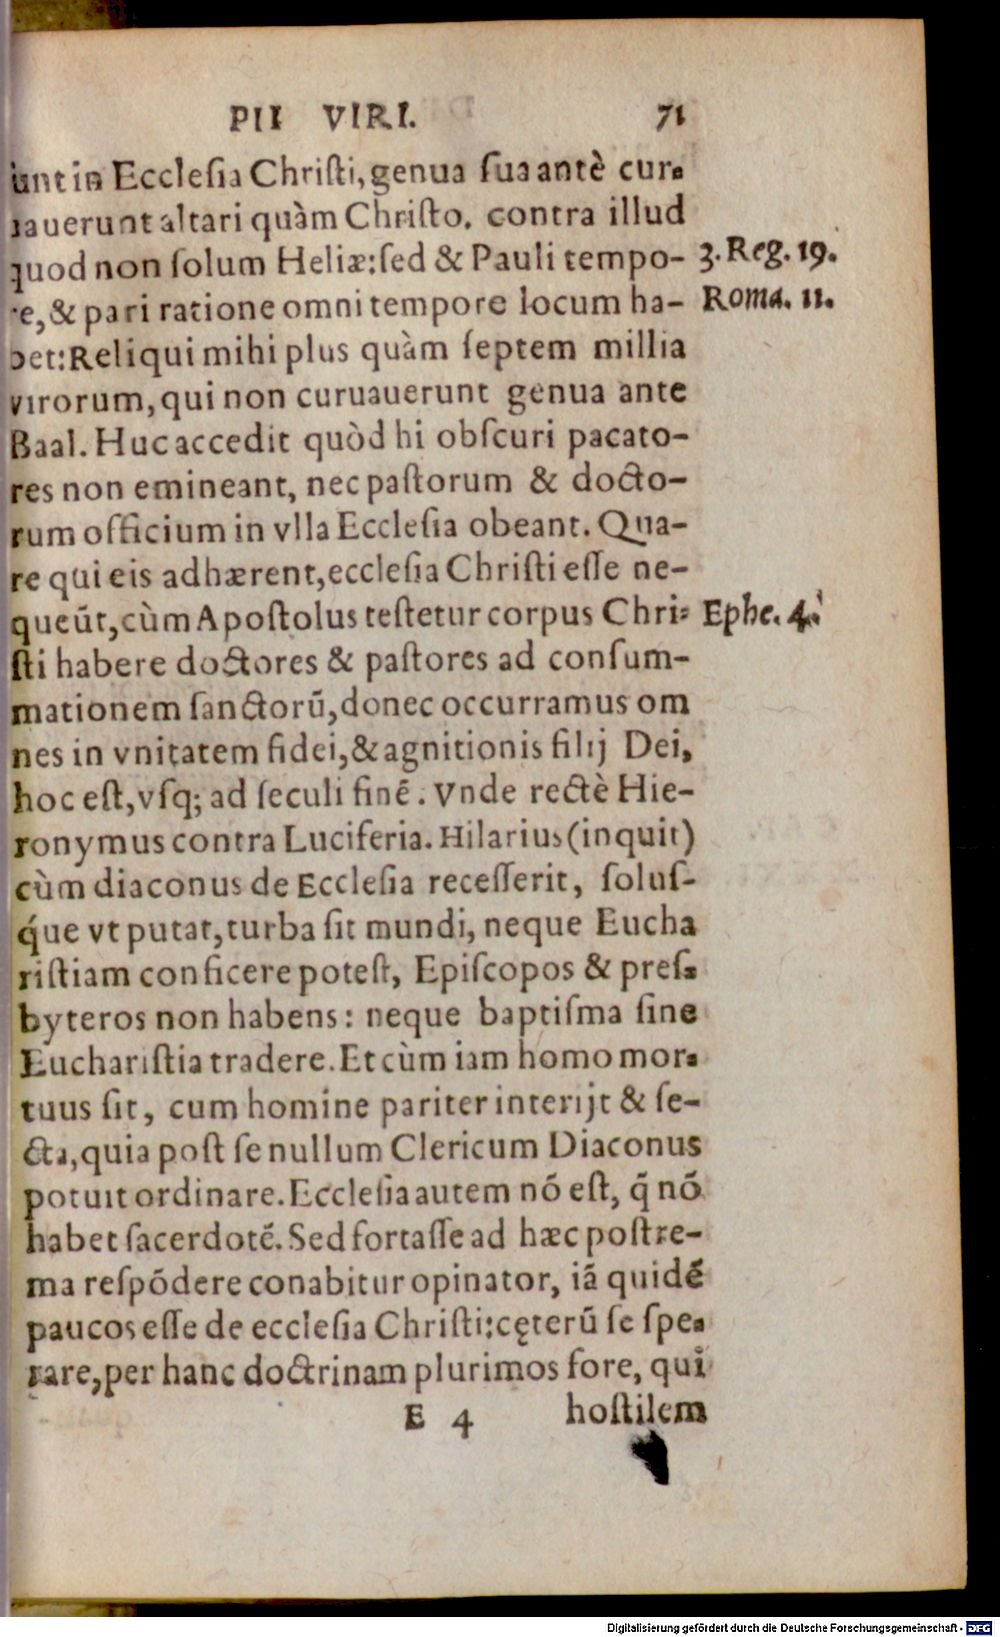 PII VIRI. 71
unt in Ecclesia Christi, genua sua antè cur-
uauerunt altari quàm Christo. contra illud
quod non solum Heliæ: sed & Pauli tempo- 3. Reg. 19.
re, & pari ratione omni tempore locum ha- Roma. 11.
bet: Reliqui mihi plus quàm septem millia
virorum, qui non curuauerunt genua ante
Baal. Huc accedit quòd hi obscuri pacato-
res non emineant, nec pastorum & docto-
rum officium in vlla Ecclesia obeant. Qua-
re qui eis adhærent, ecclesia Christi esse ne-
queūt, cùm Apostolus testetur corpus Chri- Ephe. 4.
sti habere doctores & pastores ad consum-
mationem sanctorū, donec occurramus om
nes in vnitatem fidei, & agnitionis filij Dei,
hoc est, vsq; ad seculi finē. Vnde rectè Hie-
ronymus contra Luciferia. Hilarius (inquit)
cùm diaconus de Ecclesia recesserit, solus-
q́ue vt putat, turba sit mundi, neque Eucha
ristiam conficere potest, Episcopos & pres-
byteros non habens: neque baptisma sine
Eucharistia tradere. Et cùm iam homo mor-
tuus sit, cum homine pariter interijt & se-
cta, quia post se nullum Clericum Diaconus
potuit ordinare. Ecclesia autem nō est, q̄ nō
habet sacerdotē. Sed fortasse ad hæc postre-
ma respōdere conabitur opinator, iā quidē
paucos esse de ecclesia Christi: cęterū se spe-
rare, per hanc doctrinam plurimos fore, qui
E 4 hostilem
Digitalisierung gefördert durch die Deutsche Forschungsgemeinschaft - DFG